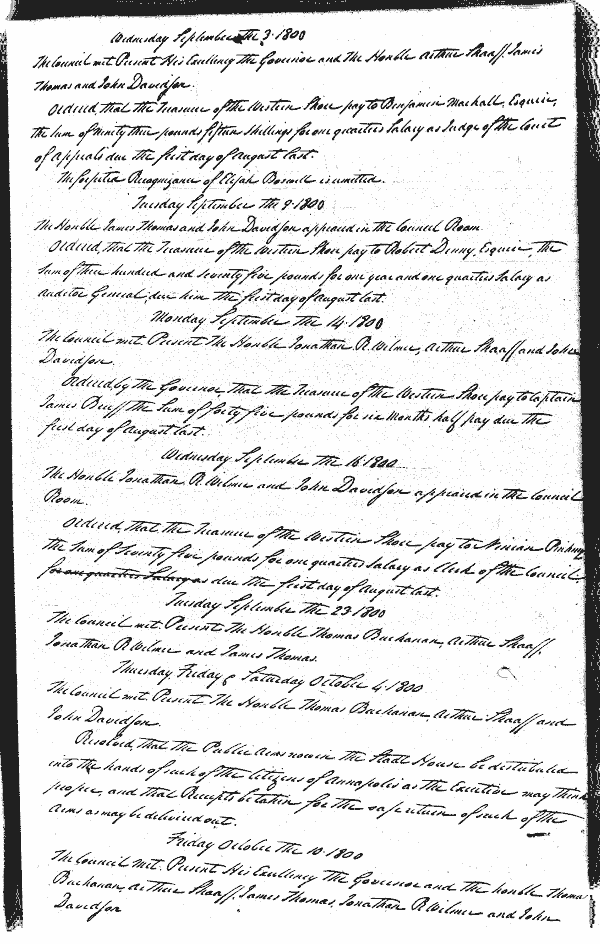 Wednesday September the 3. 1800
The Council met. Present His Excellency the Governor and the Honble Arthur Shaaff, James
Thomas and John Davidson.
Ordered, that the Treasurer of the Western Shore pay to Benjamin Mackall, Esquire,
the sum of ninety three pounds fifteen shillings for one quarters Salary as Judge of the Court
of appeals due the first day of august last.
The forfeited Recognizance of Elijah Boswell is remitted.
Tuesday September the 9. 1800
The Honble James Thomas and John Davidson appeared in the Council Room
Ordered, that the Treasurer of the Western Shore pay to Robert Denny, Esquire, the
Sum of three hundred and seventy five pounds for one year and one quarters Salary as
auditor General, due him the first day of august last.
Monday September the 14. 1800
The Council met. Present The Honble Jonathan R. Wilmer, Arthur Shaaff and John
Davidson.
Ordered by the Governor that the Treasurer of the Western Shore pay to Captain
James the Sum of forty five pounds for six months half pay due the
first day of August last.
Wednesday September the 16. 1800
The Honble Jonathan R. Wilmer and John Davidson appeared in the Council
Room.
Ordered, that the Treasurer of the Western Shore pay to Ninian Pinkney
the Sum of Seventy five pounds for one quarters Salary as Clerk of the Council
for one quarters Salary as due the first day of august last.
Tuesday September the 23. 1800
The Council met. Present The Honble Thomas Buchanan, Arthur Shaaff,
Jonathan R. Wilmer and James Thomas.
Thursday Friday & Saturday October 4. 1800
The Council met. Present The Honble Thomas Buchanan Arthur Shaaff and
John Davidson.
Resolved, that the Public Arms now in the Stadt House be distributed
into the hands of such of the Citizens of Annapolis as the Executive may think
proper, and that Receipts be taken for the safe return of such of the
Arms as may be delivered out.
Friday October the 10. 1800
The Council met. Present His Excellency the Governor and the honble Thomas
Buchanan, Arthur Shaaff, James Thomas, Jonathan R. Wilmer and John
Davidson